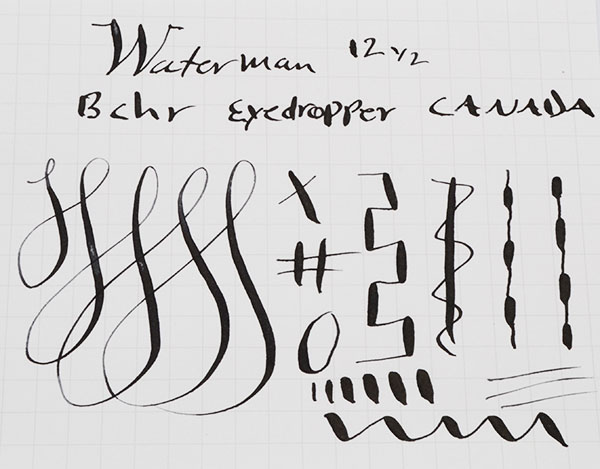 Waterman 12 1/2
Bchr Eyedropper CANADA